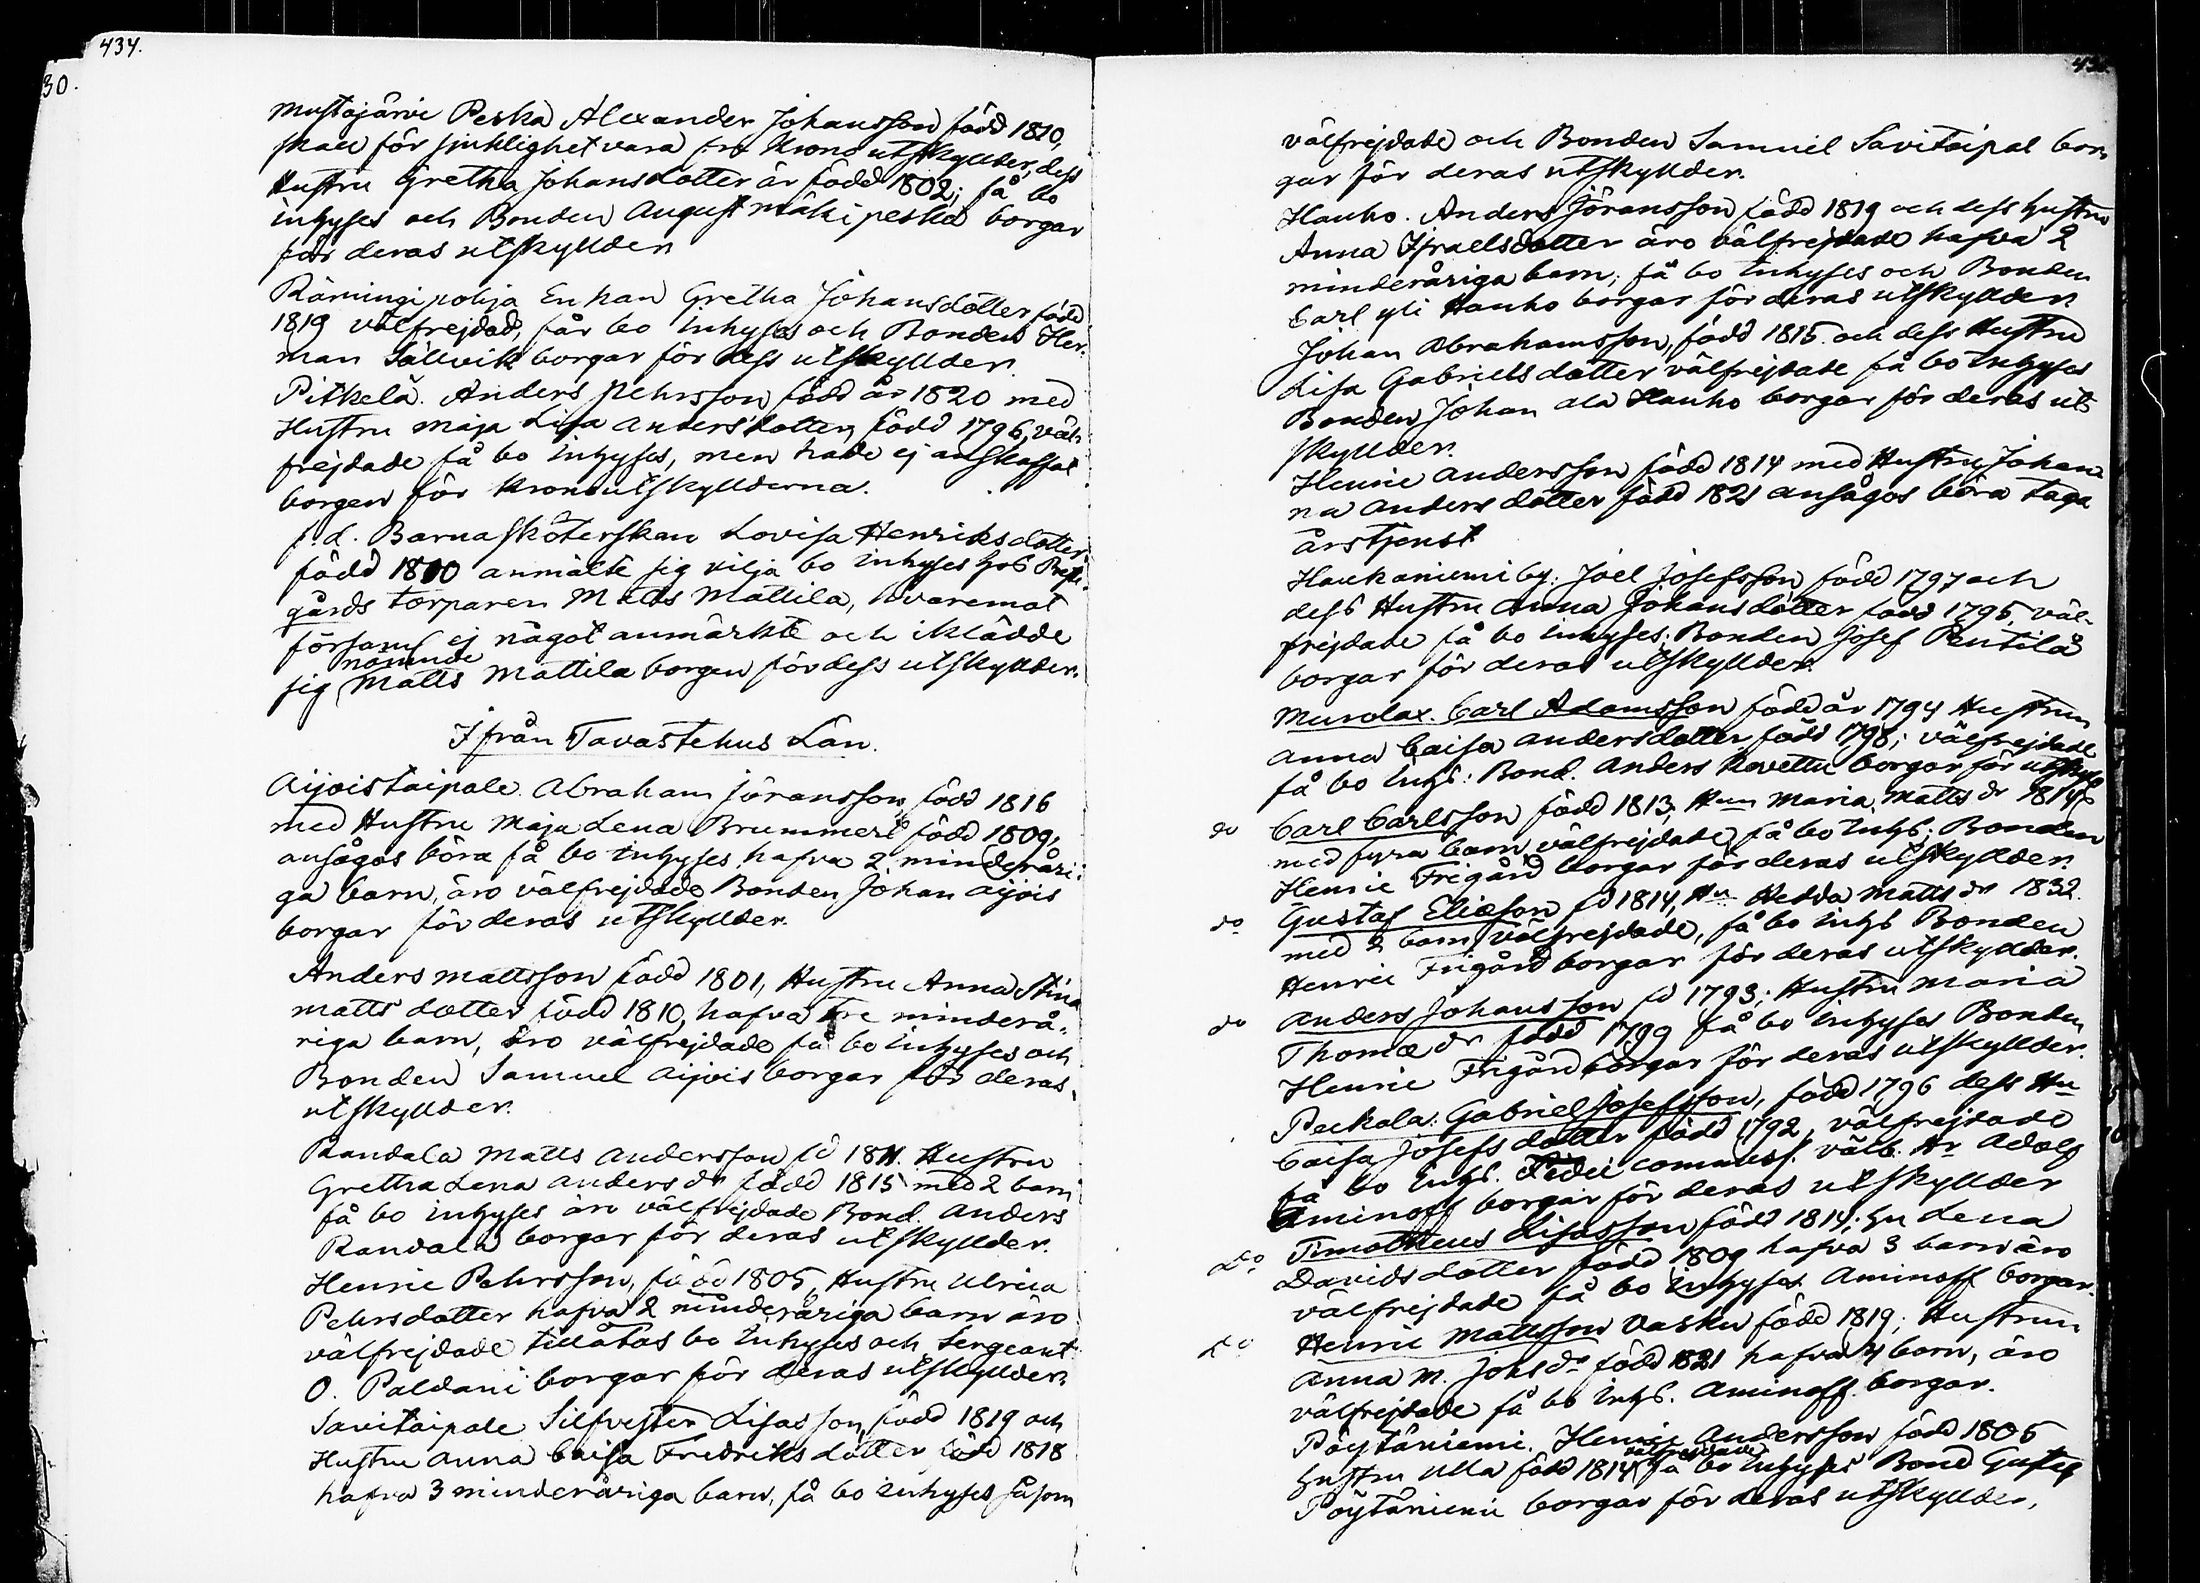 434.
30.
Mustajärvi Peska Alexander Johansson född 1810,
skall för sjuklighet vara fri Krono utskyllder, dess
Hustru Gretha Johansdotter är född 1802; få bo
inhyses och Bonden August Mäkipeska borgar
för deras utskyllder
Rämingipohja Enkan Gretha Johansdotter född
1819 välfrejdad, får bo inhyses och Bonden Her-
man Sällvik borgar för dess utskyllder.
Pitkelä. Anders Pehrsson född år 1820 med
Hustru Maja Lisa Andersdotter, född 1796, väl-
frejdade få bo inhyses, men hade ej anskaffat
borgen för Kronoutskyllderna.
f.d. Barnasköterskan Lovisa Henriksdotter
född 1800 anmälte sig vilja bo inhyses hos Prest-
gårds torparen Matts Mattila, hvaremot
församl ej något anmärkte och iklädde
nämnde
sig Matts Mattila borgen för dess utskyllder.
Ifrån Tavastehus Län.
Aijoistaipale. Abraham Jöransson, född 1816
med Hustru Maja Lena Brummert född 1809;
ansågos böra få bo inhyses hafva 2 minderåri-
ga barn, äro välfrejdade Bonden Johan Aijois
borgar för deras utskyllder.
Anders Mattsson född 1801, Hustru Anna Stina
Matts dotter född 1810, hafva tre minderå-
riga barn, äro välfrejdade få bo inhyses och
Bonden Samuel Aijois borgar för deras
utskyllder.
Randala Matts Andersson fd 1811. Hustru
Gretha Lena Anders dr född 1815 med 2 barn
få bo inhyses äro välfrejdade Bond. Anders
Randala borgar för deras utskyllder.
Henric Pehrsson, född 1805, Hustru Ulrica
Pehrsdotter hafva 2 minderåriga barn äro
välfrejdade tillåtas bo inhyses och Sergeant
O. Paldani borgar för deras utskyllder.
Savitaipale Silfvester Lisasson, född 1819 och
Hustru Anna Caisa Fredriksdotter född 1818
hafva 3 minderåriga barn, få bo inhyses såsom
välfrejdade och Bonden Samuel Savitaipal bor-
gar för deras utskyllder.
Hauho. Anders Jöransson född 1819 och dess hustru
Anna Israelsdotter äro välfrejdade hafva 2
minderåriga barn; få bo inhyses och Bonden
Carl yli Hauho borgar för deras utskyllder.
Johan Abrahamsson, född 1815. och dess Hustru
Lisa Gabrielsdotter välfrejdade få bo inhyses
Bonden Johan ala Hauho borgar för deras ut-
skyllder.
Henric Andersson född 1814 med Hustru Johan-
na Anders dotter född 1821 ansågos böra taga
årstjenst
Haukaniemi by: Joel Josefsson född 1797 och
dess Hustru Anna Johansdotter född 1795, väl-
frejdade få bo inhyses; Bonden Josef Pentilä
borgar för deras utskyllder.
Murolax. Carl Adamsson född år 1794 Hustrun
Anna Caisa Andersdotter född 1798; välfrejdade
få bo inhs: Bond. Anders Kovettu borgar för utskyld
do Carl Carlsson född 1813; Hun Maria Matts dr 1814
med fyra barn välfrejdade få bo inhs; Bonden
Henric Frigård borgar för deras utskyllder.
do Gustaf Eliæson fd 1814, Hu Hedda Matts dr 1832.
med 2 barn välfrejdade, få bo inhs Bonden
Henric Frigård borgar för deras utskyllder.
do Anders Johansson fd 1793; Hustru Maria
Thomæ dr född 1799 få bo inhyses Bonden
Henric Frigård borgar för deras utskyllder.
Peckala: Gabriel Josefsson, född 1796 dess Hu
Caisa Josefsdotter född 1792, välfrejdade
få bo inhs. Fidei commiss. välb. Hr Adolf
Aminoff borgar för deras utskyllder
Do Timotheus Lisasson född 1814; hu Lena
Davidsdotter född 1809 hafva 3 barn äro
välfrejdade få bo inhyses Aminoff borgar.
do Henric Mattsson Vasku född 1819; Hustrun
Anna M. Johs dr född 1821 hafva 4 barn, äro
välfrejdade få bo inhs. Aminoff borgar.
Pöytäniemi. Henric Andersson född 1805
välfrejdade
hustru Ulla född 1814 få bo inhyses Bond Gustaf
Pöytäniemi borgar för deras utskyllder,